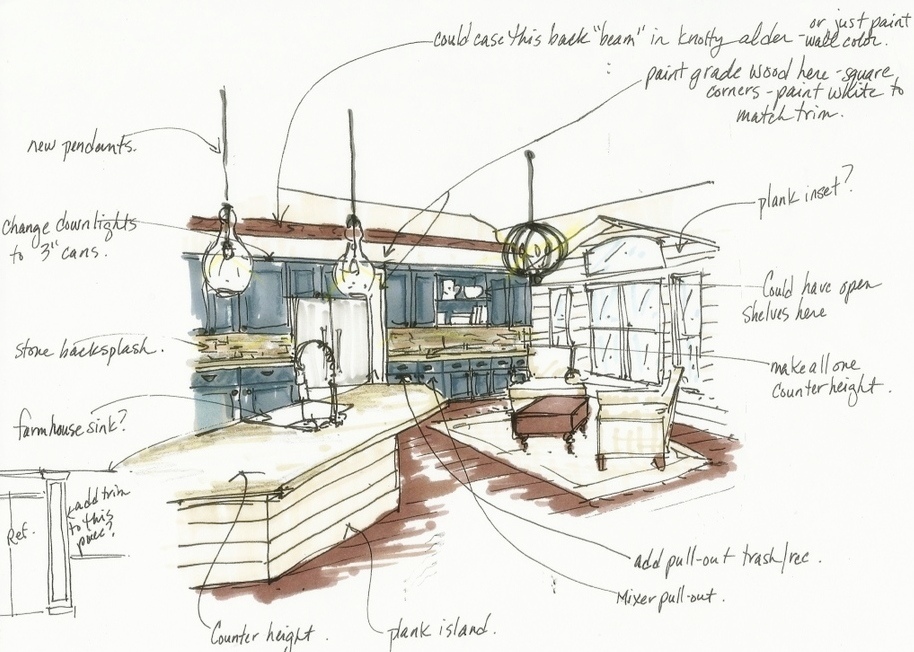 could case this back "beam" in knotty alder - or just paint
wall color.
paint grade wood here - square
corners - paint white to
match trim.
new pendants.
plank inset?
change downlights
to 3" cans.
Could have open
shelves here
stone backsplash.
make all one
counter height.
farmhouse sink?
add trim
to this
piece?
Ref.
add pull-out trash/rec.
Mixer pull-out.
Counter height.
plank island.